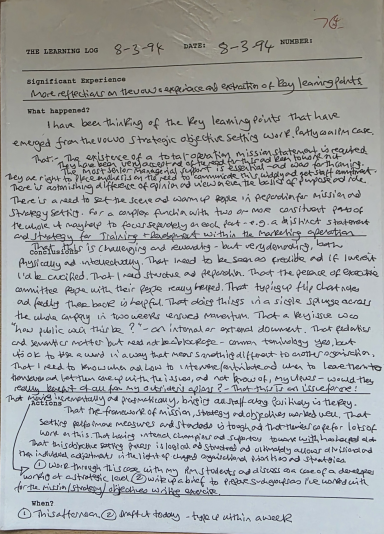 7G
THE LEARNING LOG 8-3-94 DATE: 8-3-94 NUMBER:
Significant Experience
More reflections on the Volvo experience and extraction of key learning points.
What happened?
I have been thinking of the key learning points that have
emerged from the Volvo strategic objective setting work, partly as a MSc case.
That - The existence of a total operation mission statement is required
They have been very accepting of the need for this and keen to work it out
The most senior managerial support is essential - and was forthcoming.
They are right to place emphasis on the need to communicate this widely and get staff commitment.
There is astonishing difference of opinion and view over the basics of purpose and role
There is a need to set the scene and warm up people in preparation for mission and
strategy setting. For a complex function with two or more constituent parts of
the whole it may help to focus separately on each part - e.g. a distinct statement
and strategy for Training + Development within the Marketing operation.
Conclusions
That this is challenging and rewarding - but very demanding, both
physically and intellectually. That I need to be seen as credible and if I weren't
I'd be crucified. That I need structure and preparation. That the presence of executive
committee people with their people really helped. That typing up flip chart notes
and feeding these back is helpful. That doing things in a single splurge across
the whole company in two weeks ensured momentum. That a key issue was
"how public will this be?" - an internal or external document. That pedantics
and semantics matter but need not be a blockage - common terminology yes, but
it's ok to use a word in a way that means something different to another organisation.
That I need to know when and how to intervene/contribute and when to leave them to
themselves and let them come up with the issues, and not know it, my view - would they
really
That moving incrementally and pragmatically, bringing all staff along positively is the key.
Actions
That the framework of mission, strategy and objectives worked well. That
setting performance measures and standards is tough and that there is scope for lots of
work on this. That having internal champions and supporters
That this objective setting process is logical and structured and ultimately allows divisional and
then individual adjustments in the light of agreed organisational priorities and strategies.
① Work through this case with my MSc students and discuss as a case of a developer
working at a strategic level ② Write up a brief to prepare subgroups as I've worked with
for the mission/strategy/objectives writing exercise.
When?
① This afternoon, ② Draft it today - type up within a week